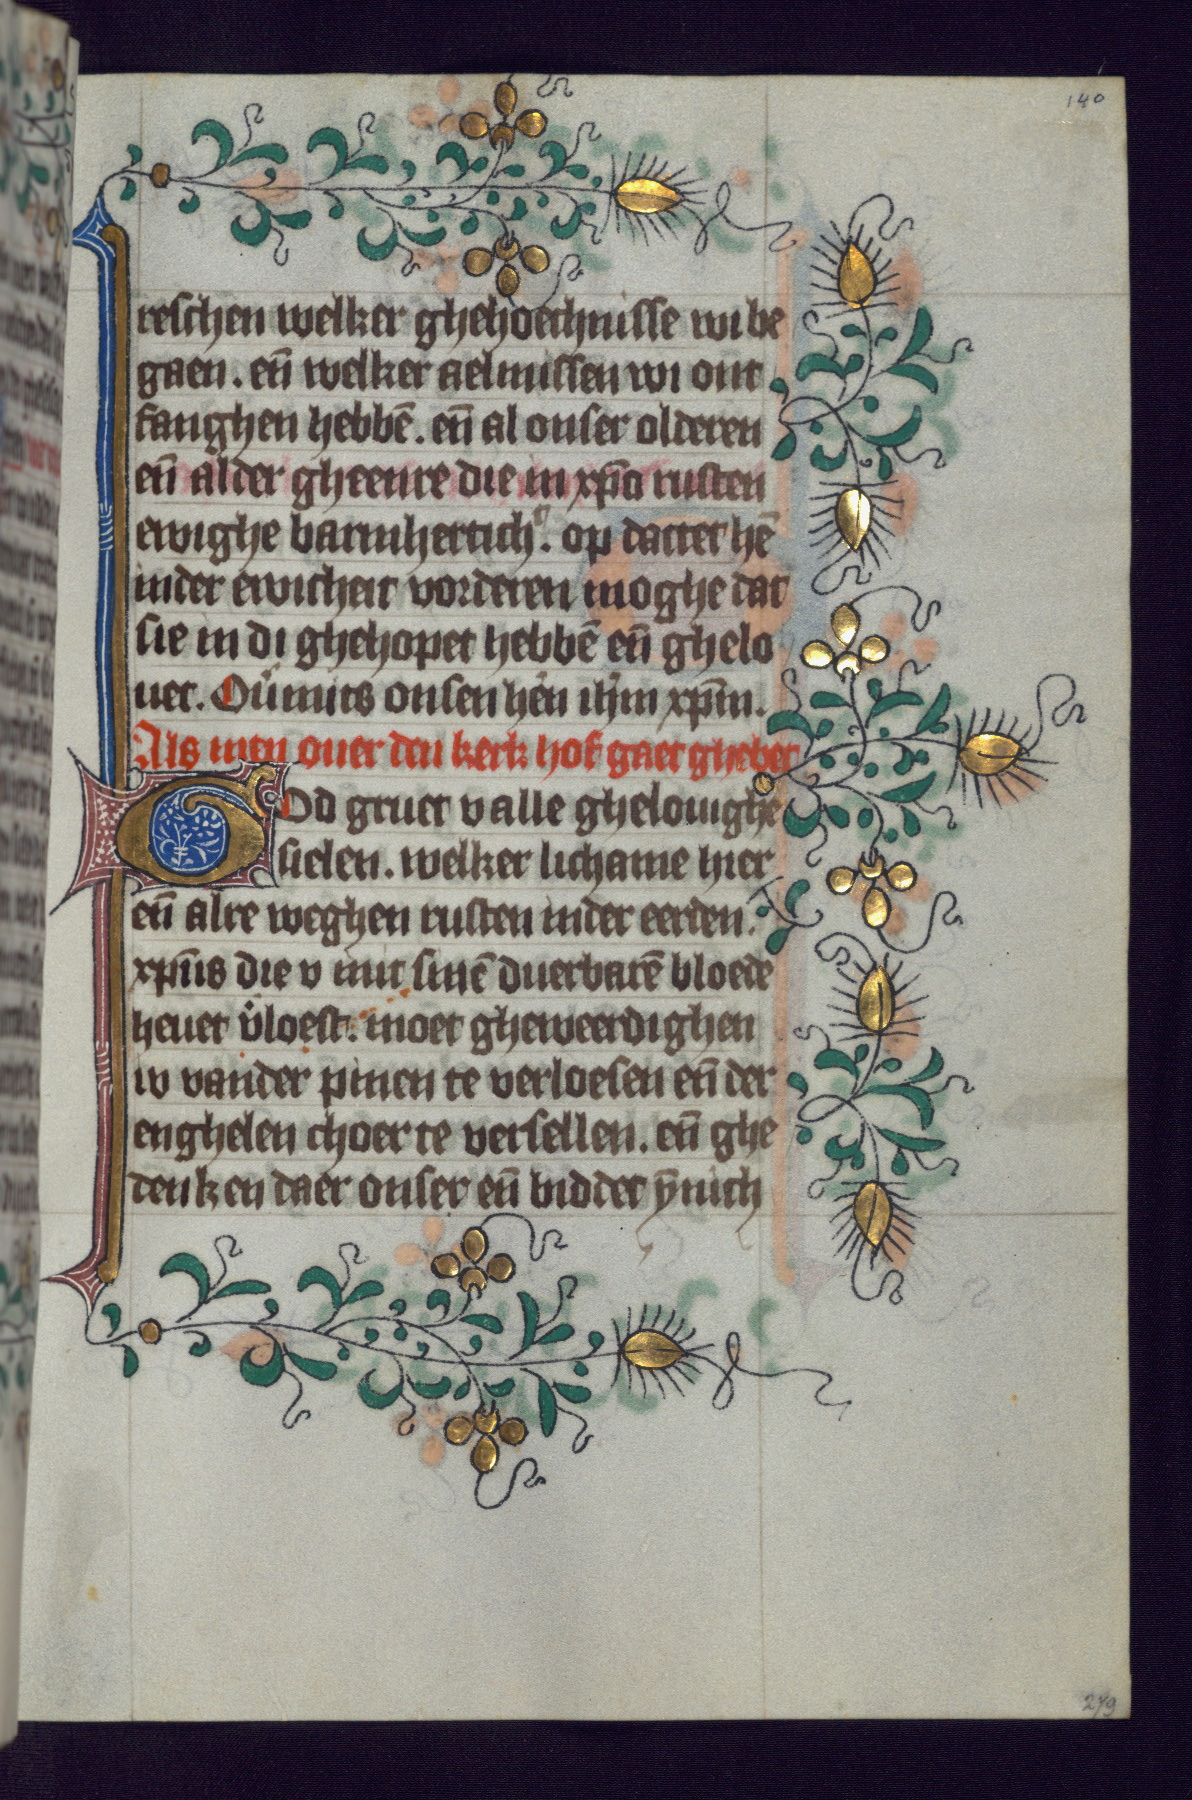 140
reschen welker ghehoechnisse wi be
gaen. eñ welker aelmissen wi ont
fanghen hebbē. eñ al onser olderen
eñ alder gheenre die in xp̄o rusten
ewighe barmherticḣ. op dattet hē
inder ewicheit vorderen moghe dat
sie in di ghehopet hebbē eñ ghelo
uet. Ou̇mits onsen hēn ihm̄ xpm̄.
Als men ouer den kerk hof gaet ghebet
God gruet v alle ghelouighe
sielen. welker lichame hier
eñ alre weghen rusten inder eerden.
xpūs die v mit sinē duerbarē bloede
heuet v̇loest. moet gheweerdighen
iv vander pinen te verloesen eñ der
enghelen choer te versellen. eñ ghe
denken daer onser eñ biddet ȳnich
279